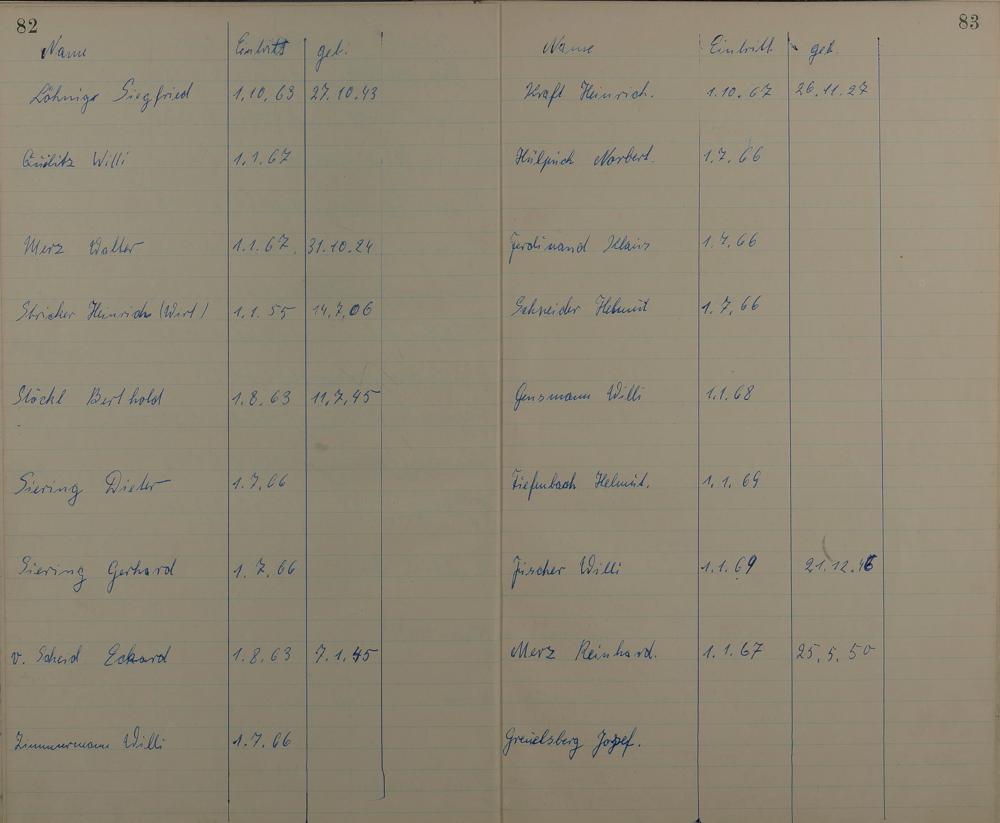 82
Name Eintritt geb.
Löhnige Siegfried 1.10.63 27.10.43
Quilitz Willi 1.1.67
Merz Walter 1.1.67. 31.10.24
Stricker Heinrich (Wirt) 1.1.55 14.7.06
Stöckl Berthold 1.8.63 11.7.45
Siering Dieter 1.7.66
Siering Gerhard 1.7.66
v. Scheid Eckard 1.8.63 7.1.45
Zimmermann Willi 1.7.66
83
Name Eintritt geb.
Kraft Heinrich. 1.10.67 26.11.27
Hülpüch Norbert. 1.7.66
Ferdinand Klaus 1.7.66
Schneider Helmut 1.7.66
Gensmann Willi 1.1.68
Tiefenbach Helmut. 1.1.69
Fischer Willi 1.1.69 21.12.46
Merz Reinhard. 1.1.67 25.5.50
Greuelsberg Josef.